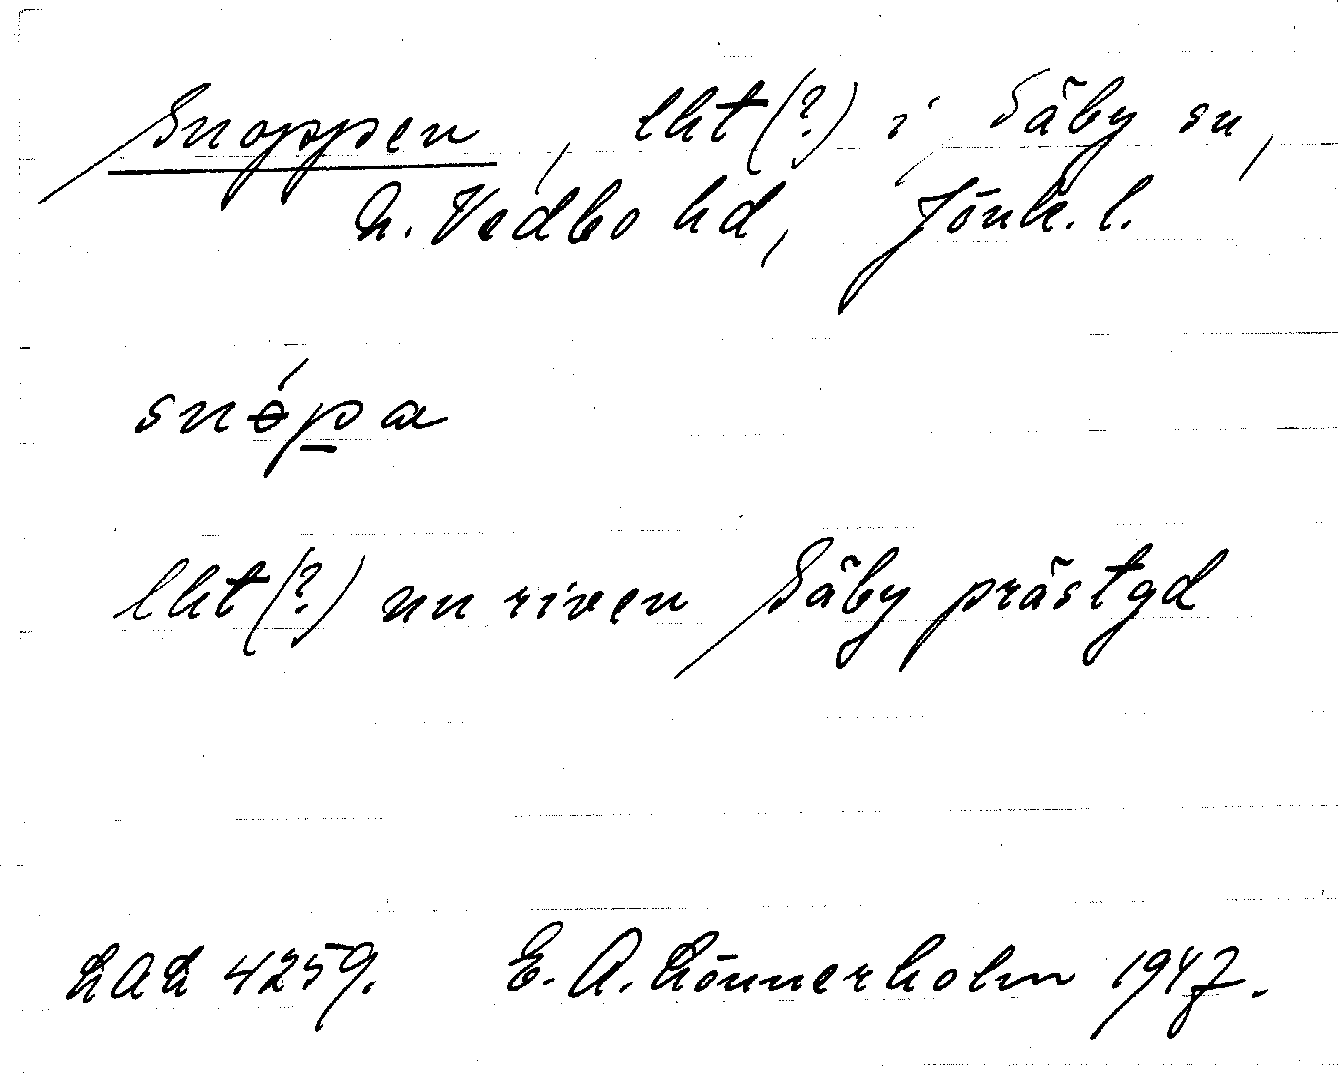 Snoppen, lht(?) i Säby sn,
N. Vedbo hd, Jönk. l.
snɵ́p̲a
lht(?) nu riven Säby prästgd
LAL 4259. E. A. Lönnerholm 1947.